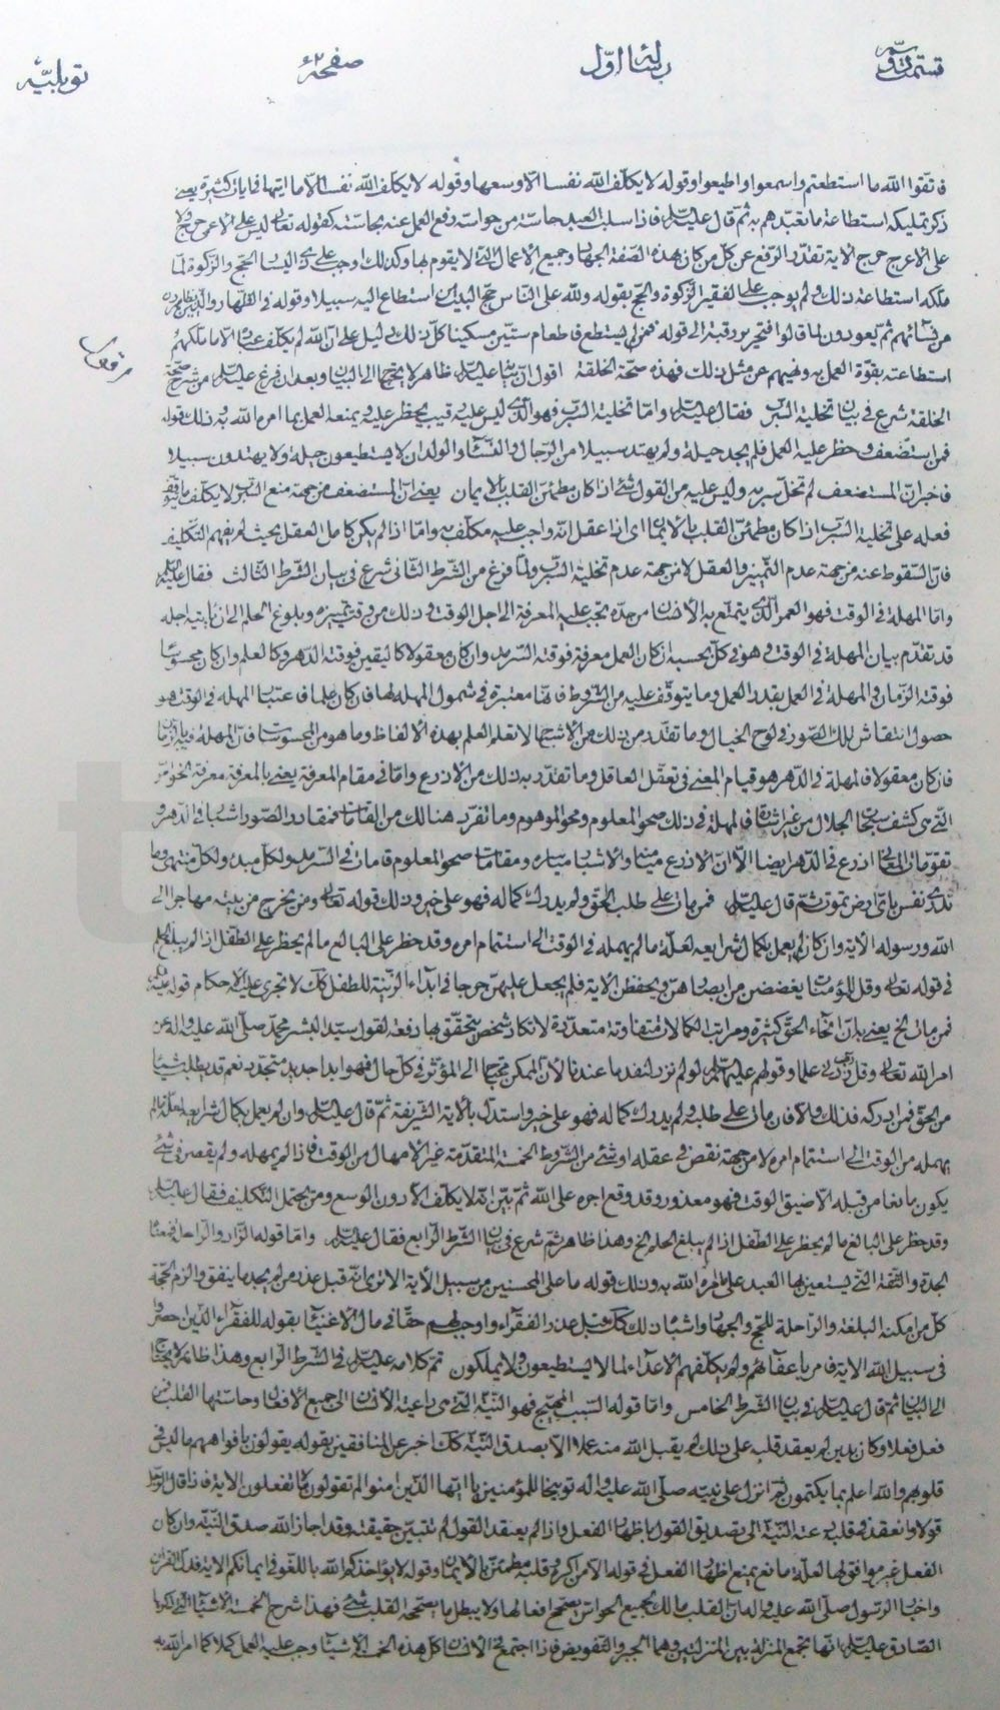 قسمت دوم رسالة اول صفحة توبليه
فاتقوا الله ما استطعتم واسمعوا واطيعوا وقوله لا يكلف الله نفسا الا وسعها وقوله لا يكلف الله نفسا الا ما اتيها في ايات كثيرة يعني
ذكر تمليكه استطاعة ما تعبدهم به ثم قال عليه السلام فاذا سلب العبد حاسة من حواسه رفع العمل عنه بحاسته كقوله تعالى ليس على الاعمى حرج ولا
على الاعرج حرج الاية تقدر الرفع عن كل من كان بهذه الصفة الجهاد وجميع الاعمال التي لا يقوم بها وكذلك وجب على ذي اليسار الحج والزكوة لما
ملكه استطاعة ذلك ولم يوجب على الفقير الزكوة والحج بقوله ولله على الناس حج البيت من استطاع اليه سبيلا وقوله في الظهار والذين يظاهرون
من نسائهم ثم يعودون لما قالوا فتحرير رقبة الى قوله فمن لم يستطع فاطعام ستين مسكينا كل ذلك دليل على ان الله لم يكلف عباده الا ما ملكهم
استطاعته بقوة العمل به ونهيهم عن مثل ذلك فهذه صحة الخلقة اقول ان بيانه عليه السلام ظاهر لا يحتاج الى البيان وبعد ان فرغ عليه السلام من شرح صحة
الخلقة شرع في بيان تخلية السرب فقال عليه السلام واما تخلية السرب فهو الذي ليس عليه رقيب يحظر عليه ويمنعه العمل بما امره الله به وذلك قوله
فمن استضعف وحظر عليه العمل فلم يجد حيلة ولم يهتد سبيلا من الرجال والنساء والولدان لا يستطيعون حيلة ولا يهتدون سبيلا
فاخبر ان المستضعف لم تخل سربه وليس عليه من القول شئ اذا كان مطمئن القلب بالايمان يعني ان المستضعف من جهة منع السرب لا يكلف ما يتوقف
فعله على تخلية السرب اذا كان مطمئن القلب بالايمان اي اذا عقل انه واجب عليه مكلف به واما اذا لم يكن كامل العقل بحيث لم يفهم التكليف
فان السقوط عنه من جهة عدم التمييز والعقل لا من جهة عدم تخلية السرب ولما فرغ من الشرط الثاني شرع في بيان الشرط الثالث فقال عليه السلام
واما المهلة في الوقت فهو العمر الذي يتمتع به الانسان من حد ما تجب عليه المعرفة الى اجل الوقت وذلك من وقت تمييزه وبلوغ الحلم الى ان ياتيه اجله
قد تقدم بيان المهلة في الوقت وهو في كل بحسبه ان كان العمل معرفة فوقته السرمد وان كان معقولا كاليقين فوقته الدهر وكالعلم وان كان محسوسا
فوقته الزمان والمهلة في العمل بقدر العمل وما يتوقف عليه من الشروط فانها معتبرة في شمول المهلة لها فان كان علما فاعتبار المهلة في الوقت هو
حصول انتقاش تلك الصور في لوح الخيال وما تقدر من ذلك من الاشباح لا تعلم العلم بهذه الالفاظ وما هو من المحسوسات فان المهلة فيه بالزمان
فان كان معقولا فالمهلة في الدهر هو قيام المعنى في تعقل العاقل وما تقدر به ذلك من الاذرع واما في مقام المعرفة يعني بالمعرفة معرفة الخواص
التي هي كشف سبحات الجلال من غير اشارة فالمهلة في ذلك صحو المعلوم ومحو الموهوم وما انفرد هنالك من المقامات فمقادر الصور اشباح في الدهر و
تقومات المعاني اذرع في الدهر ايضا الا ان الاذرع والاشباح ومقامات صحو المعلوم قامات في السرمد ولكل مبدء ولكل منتهى وما
تدري نفس باي ارض تموت ثم قال عليه السلام فمن مات على طلب الحق ولم يدرك كماله فهو على خير وذلك قوله تعالى ومن يخرج من بيته مهاجرا الى
الله ورسوله الاية وان كان لم يعمل بكمال شرايعه لعلة ما لم يمهله في الوقت الى استتمام امره وقد حظر على البالغ ما لم يحظر على الطفل اذا لم يبلغ الحلم
في قوله تعالى وقل للمؤمنات يغضضن من ابصارهن ويحفظن الاية فلم يجعل عليهن حرجا في ابداء الزينة للطفل كذلك لا تجري عليه الاحكام قوله عليه السلام
فمن مات الخ يعني به ان انحاء الحق كثيرة ومراتب الكمالات متفاوتة متعددة لا تكاد شخص يتحقق بها دفعة لقول سيد البشر محمد صلى الله عليه واله عن
امر الله تعالى وقل رب زدني علما وقولهم عليهم السلام لو لم نزدد لنفد ما عندنا لان الممكن محتاج الى المؤثر في كل حال فهو ابدا جديد متجدد نعم قد يطلب شيئا
من الحق فمن ادركه فذلك والا فان مات على طلبه ولم يدرك كماله فهو على خير واستدل بالاية الشريفة ثم قال عليه السلام وان لم يعمل بكمال شرايعه لعلة ما لم
يمهله من الوقت الى استتمام امره لا من جهة نقص في عقله او شئ من الشروط الخمسة المتقدمة غير الامهال من الوقت فاذا لم يمهله ولم يقصر في شئ
يكون مانعا من قبله الا ضيق الوقت فهو معذور وقد وقع اجره على الله ثم بين انه لا يكلف الا دون الوسع ومن يحتمل التكليف فقال عليه السلام
وقد حظر على البالغ ما لم يحظر على الطفل اذا لم يبلغ الحلم الخ وهذا ظاهر ثم شرع في بيان الشرط الرابع فقال عليه السلام واما قوله الزاد والراحلة فمعناه
الجدة والبلغة التي يستعين بها العبد على ما امره الله به وذلك قوله ما على المحسنين من سبيل الاية الا ترى انه قبل عذر من لم يجد ما ينفق والزم الحجة
كل من امكنته البلغة والراحلة للحج والجهاد واشباه ذلك كذلك قبل عذر الفقراء واوجب لهم حقا في مال الاغنياء بقوله للفقراء الذين احصروا
في سبيل الله الاية فامر باعفائهم ولم يكلفهم الاعداد لما لا يستطيعون ولا يملكون تم كلامه عليه السلام في الشرط الرابع وهذا ظاهر لا يحتاج
الى البيان ثم قال عليه السلام في بيان الشرط الخامس واما قوله السبب المهيج فهو النية التي هي داعية الانسان الى جميع الافعال وحاستها القلب فمن
فعل فعلا وكان بدين لم يعقد قلبه على ذلك لم يقبل الله منه عملا الا بصدق النية كذلك اخبر عن المنافقين بقوله يقولون بافواههم ما ليس في
قلوبهم والله اعلم بما يكتمون ثم انزل على نبيه صلى الله عليه واله توبيخا للمؤمنين يا ايها الذين امنوا لم تقولون ما لا تفعلون الاية فاذا قال الرجل
قولا وانعقد في قلبه دعته النية الى تصديق القول باظهار الفعل واذا لم يعتقد القول لم تتبين حقيقته وقد اجاز الله صدق النية وان كان
الفعل غير موافق لها لعلة مانع يمنع اظهار الفعل في قوله الا من اكره وقلبه مطمئن بالايمان وقوله لا يؤاخذكم الله باللغو في ايمانكم الاية فدل القران
واخبار الرسول صلى الله عليه واله ان القلب مالك لجميع الحواس يصحح افعالها ولا يبطل ما يصححه القلب شئ فهذا شرح الخمسة الاشياء التي ذكرها
الصادق عليه السلام انها تجمع المنزلة بين المنزلتين وهما الجبر والتفويض فاذا اجتمع في الانسان كل هذه الخمسة الاشياء وجب عليه العمل كملا كما امر الله به